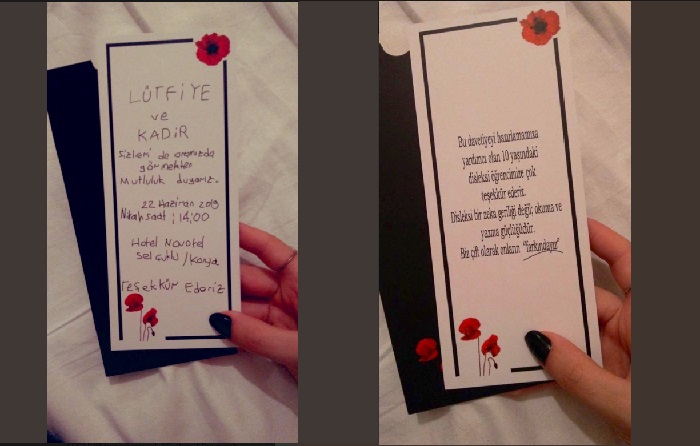 LÜTFİYE
ve
KADİR
Sizleri de aramızda
görmekten
Mutluluk duyarız.
22 Haziran 2019
Nikah saat : 14:00
Hotel Novotel
Selçuklu / Konya
Teşekkür Ederiz
Bu davetiyeyi hazırlamamıza
yardımcı olan 10 yaşındaki
disleksi öğrencimize çok
teşekkür ederiz.
Disleksi bir zeka geriliği değil; okuma ve
yazma güçlüğüdür.
Biz çift olarak onların "farkındayız"